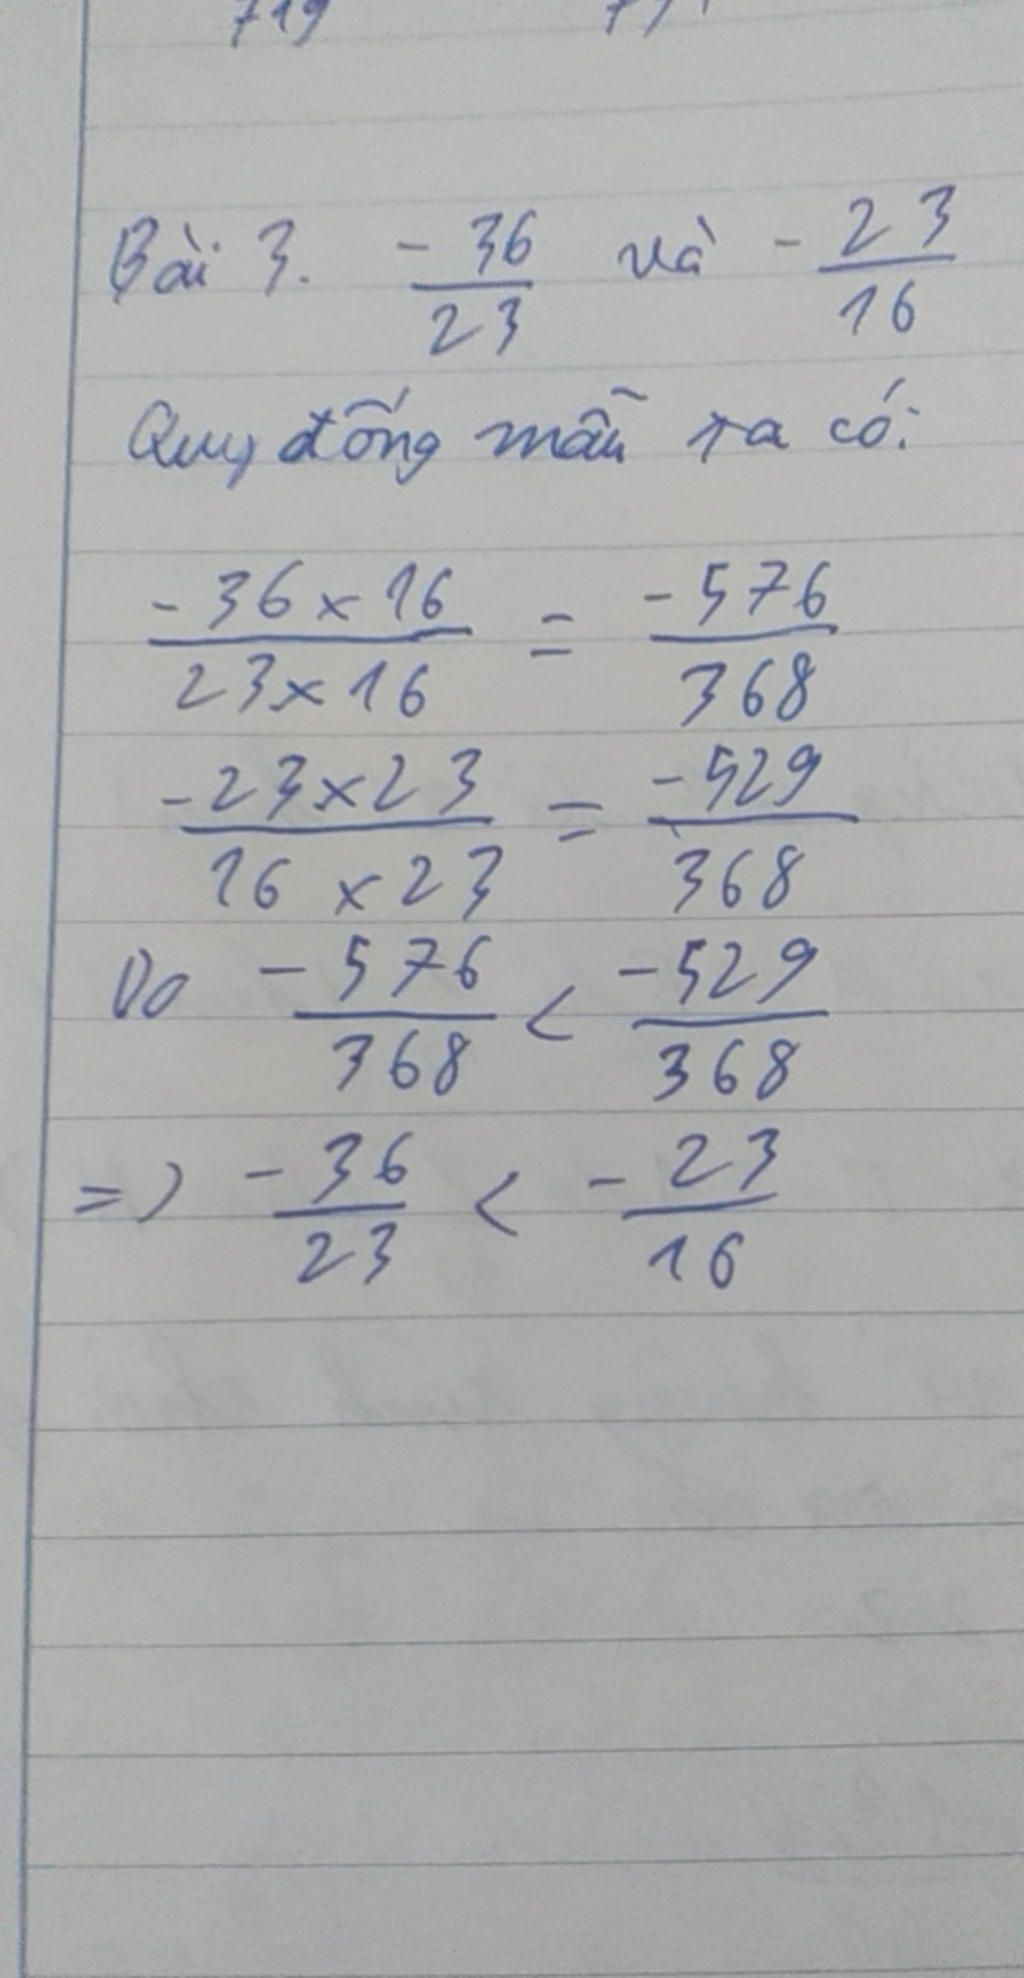 719
Bài 3. -36/23 và -23/16
Quy đống mẫu ta có:
-36 x 16 / 23 x 16 = -576/368
-23 x 23 / 16 x 23 = -529/368
Do -576/368 < -529/368
=> -36/23 < -23/16